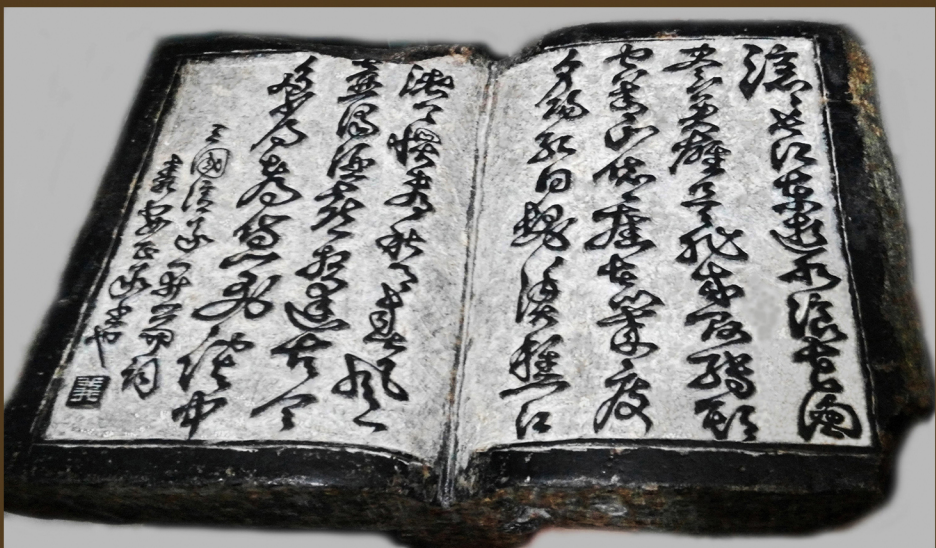 滾滾長江東逝水浪花淘
盡英雄是非成敗轉頭
空青山依舊在幾度
夕陽紅白髮漁樵江
渚上慣看秋月春風一
壺濁酒喜相逢古今
多少事都付笑談中
三國演義開篇詞
書